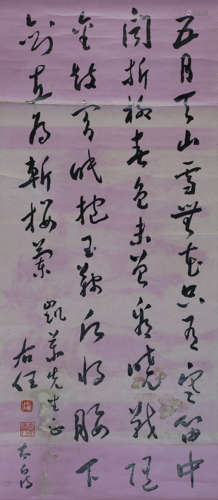 五月天山雪無花只有寒笛中
聞折柳春色未曾看曉戰隨
金鼓宵眠抱玉鞍願將腰下
劍直為斬樓蘭
凱 先生正
右任
太白詩